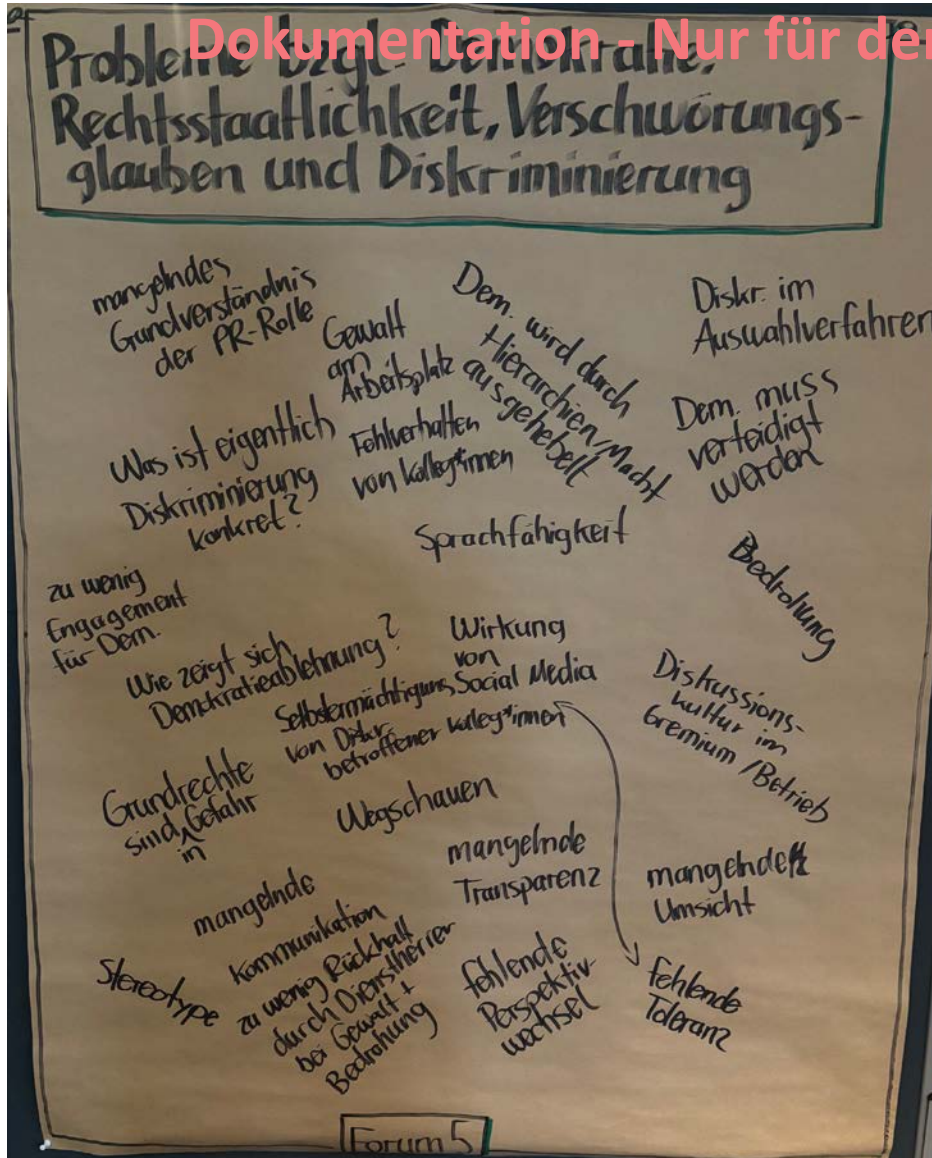 Dokumentation - Nur für der
Probleme bzgl. Demokratie,
Rechtsstaatlichkeit, Verschwörungs-
glauben und Diskriminierung
mangelndes
Grundverständnis
der PR-Rolle
Gewalt
am
Arbeitsplatz
Dem. wird durch
Hierarchien/Macht
ausgehebelt
Diskr. im
Auswahlverfahren
Was ist eigentlich
Diskriminierung
konkret?
Fehlverhalten
von Kolleg*innen
Dem. muss
verteidigt
werden
Sprachfähigkeit
Bedrohung
zu wenig
Engagement
für Dem.
Wie zeigt sich
Demokratieablehnung?
Wirkung
von
Social Media
Selbstermächtigung
von Diskr.
betroffener Kolleg*innen
Diskussions-
kultur im
Gremium/Betrieb
Grundrechte
sind in Gefahr
Wegschauen
mangelnde
Transparenz
mangelnde
Umsicht
mangelnde
Kommunikation
Stereotype
zu wenig Rückhalt
durch Dienstherren
bei Gewalt +
Bedrohung
fehlende
Perspektiv-
wechsel
fehlende
Toleranz
Forum 5